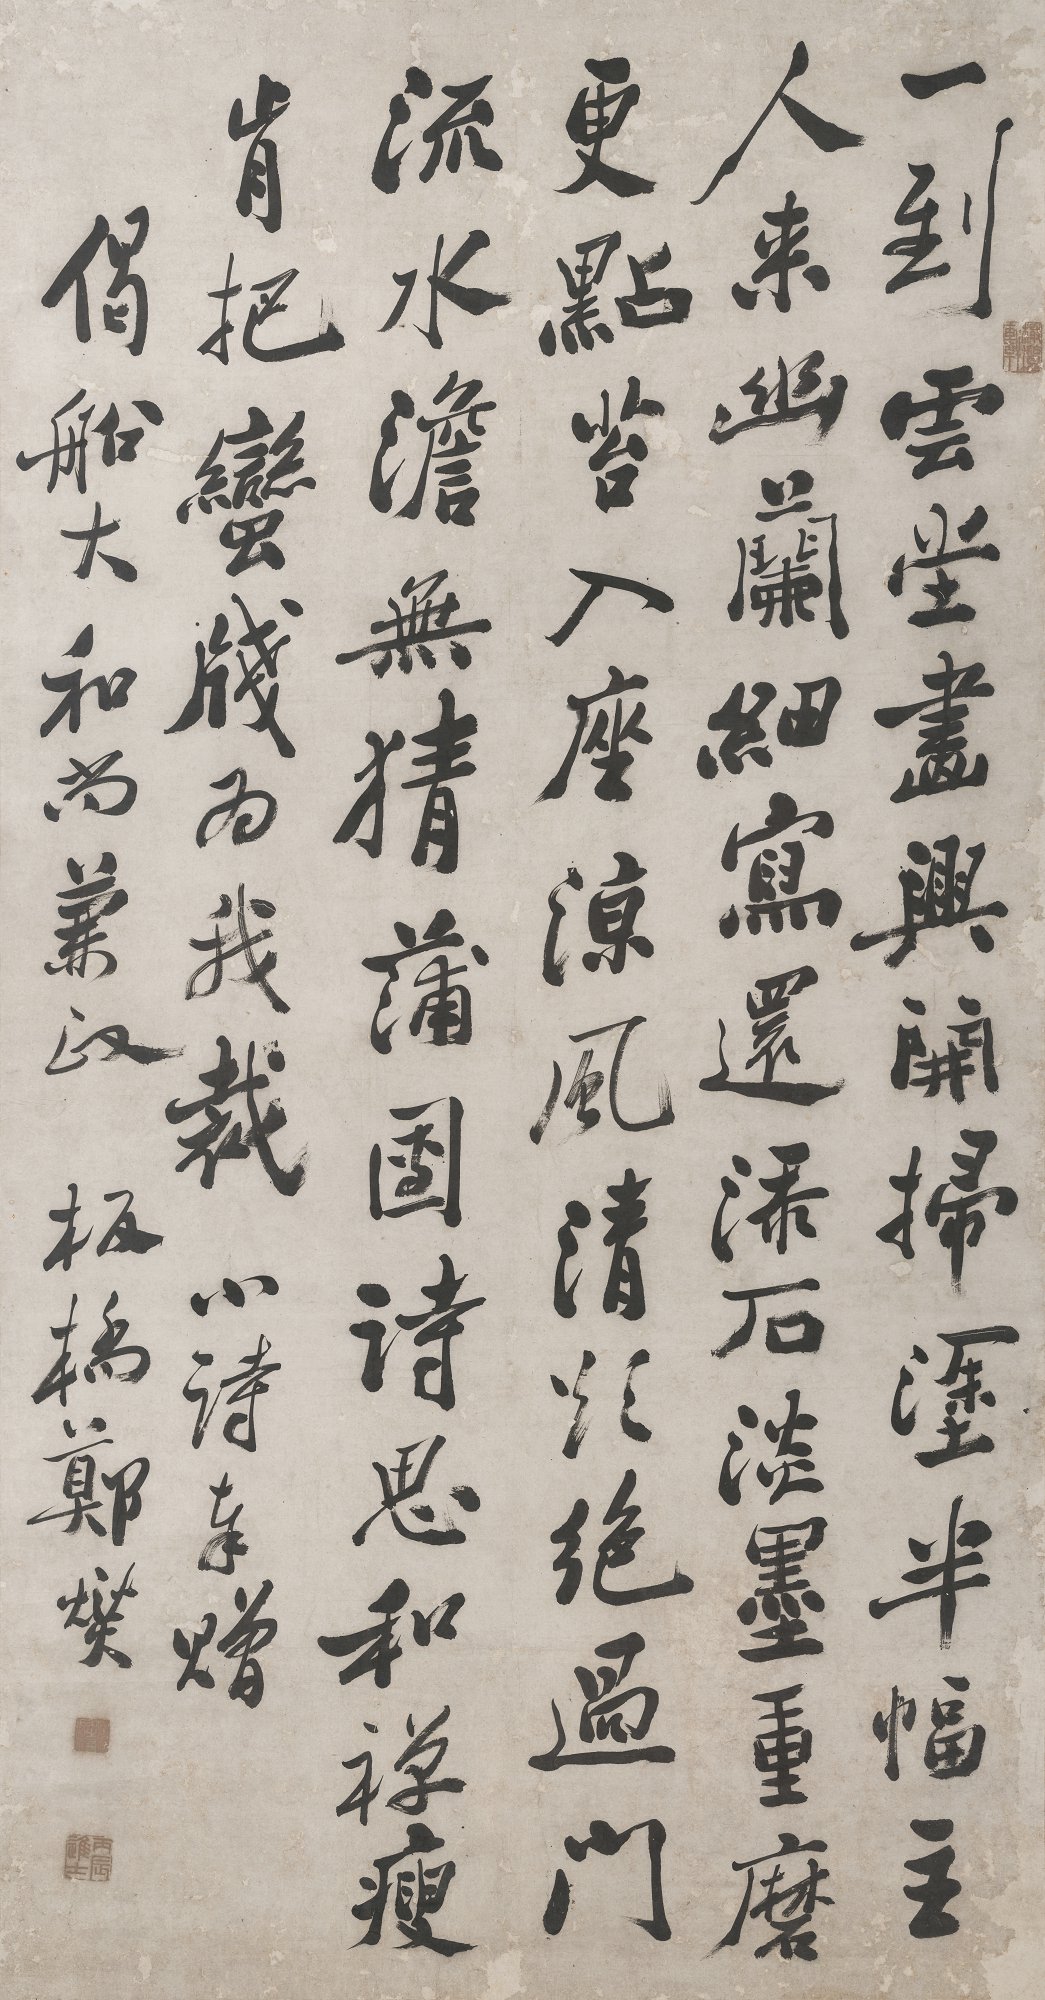 一到雲堂畫興開掃塗半幅主
人来幽蘭細寫還添石淡墨重磨
更點苔入座涼風清欲絕過門
流水澹無猜蒲團詩思和禪瘦
肯把蠻牋為我裁 小詩奉贈
偈船大和尚兼政 板橋鄭燮
丙辰進士